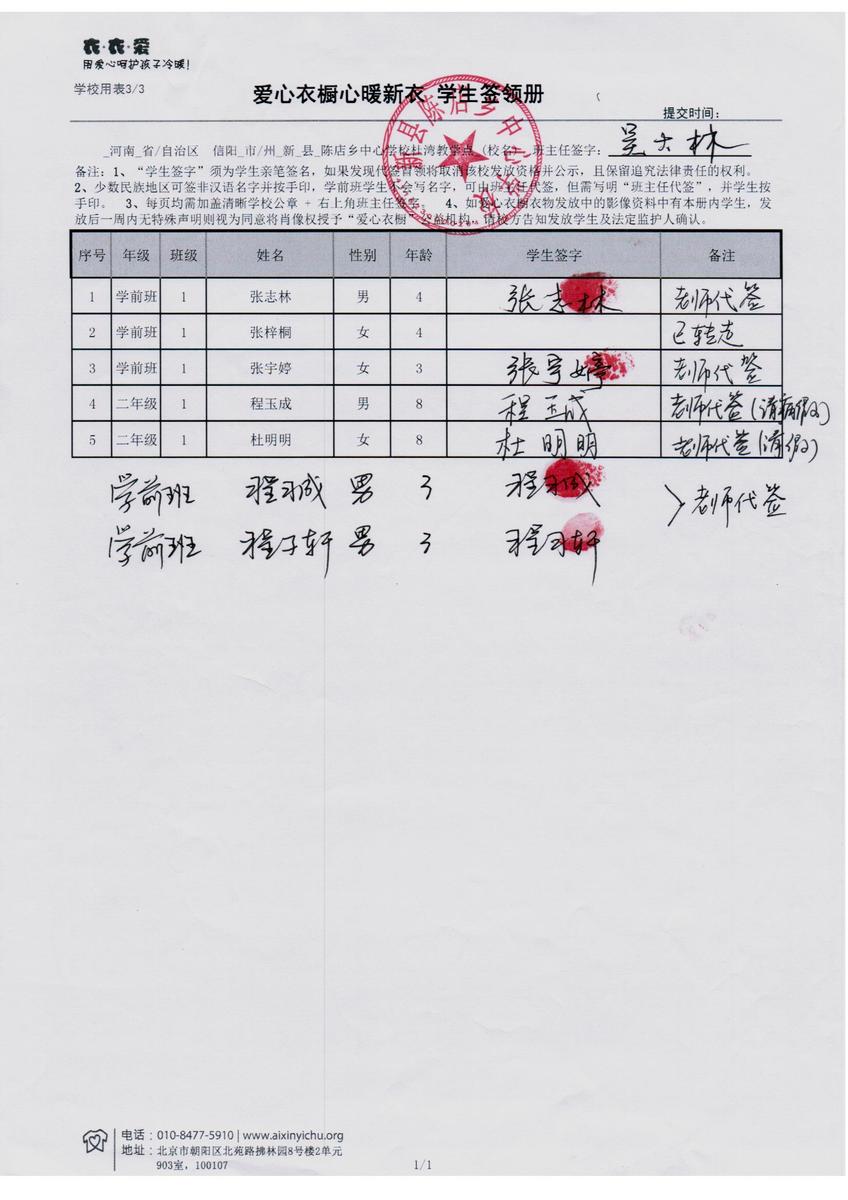 衣·衣·爱
用爱心呵护孩子冷暖!
学校用表3/3
爱心衣橱心暖新衣 学生签领册
提交时间:
_河南_省/自治区 信阳_市/州_新_县_陈店乡中心学校杜湾教学点 (校名) 班主任签字:
新县陈店乡中心学校
备注: 1、“学生签字”须为学生亲笔签名, 如果发现代签冒领将取消该校发放资格并公示, 且保留追究法律责任的权利。
2、少数民族地区可签非汉语名字并按手印, 学前班学生不会写名字, 可由班主任代签, 但需写明“班主任代签”, 并学生按
手印。 3、每页均需加盖清晰学校公章 + 右上角班主任签字。 4、如爱心衣橱衣物发放中的影像资料中有本册内学生, 发
放后一周内无特殊声明则视为同意将肖像权授予“爱心衣橱”公益机构, 请校方告知发放学生及法定监护人确认。
序号 年级 班级 姓名 性别 年龄 学生签字 备注
1 学前班 1 张志林 男 4 张志林 老师代签
2 学前班 1 张梓桐 女 4 已转走
3 学前班 1 张宇婷 女 3 张宇婷 老师代签
4 二年级 1 程玉成 男 8 程玉成 老师代签(请病假)
5 二年级 1 杜明明 女 8 杜明明 老师代签(请假)
学前班 程子成 男 3 程子成
老师代签
学前班 程子轩 男 3 程子轩
电话: 010-8477-5910 | www.aixinyichu.org
地址: 北京市朝阳区北苑路拂林园8号楼2单元
903室, 100107
1/1